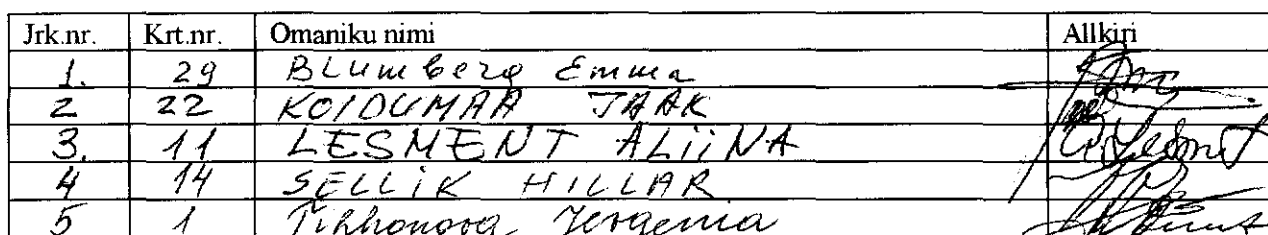 Jrk.nr. Krt.nr. Omaniku nimi Allkiri
1. 29 Blumberg Emma
2 22 KOIDUMAA JAAK
3. 11 LESMENT ALiiNA
4 14 SELLiK HILLAR
5 1 Tihhonova Jevgenia